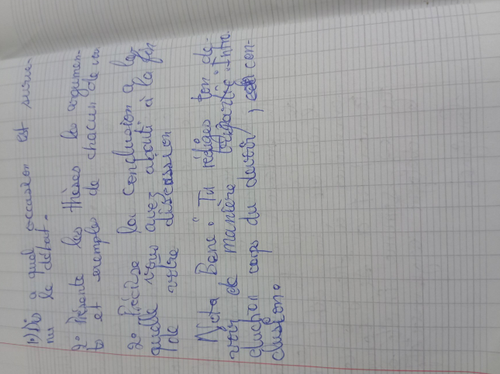 1) Dis a quel occassion est surve-
nu le debat.
2o Présente les thèses les argumen-
ts et exemples de chacun de vous
2o Précise la conclusion a la-
quelle vous avez abouti à la fin
de votre discussion
Nota Bene : Tu rédiges ton de-
voir de manière tripartie : Intro
duction corps du devoir, con-
clusion.